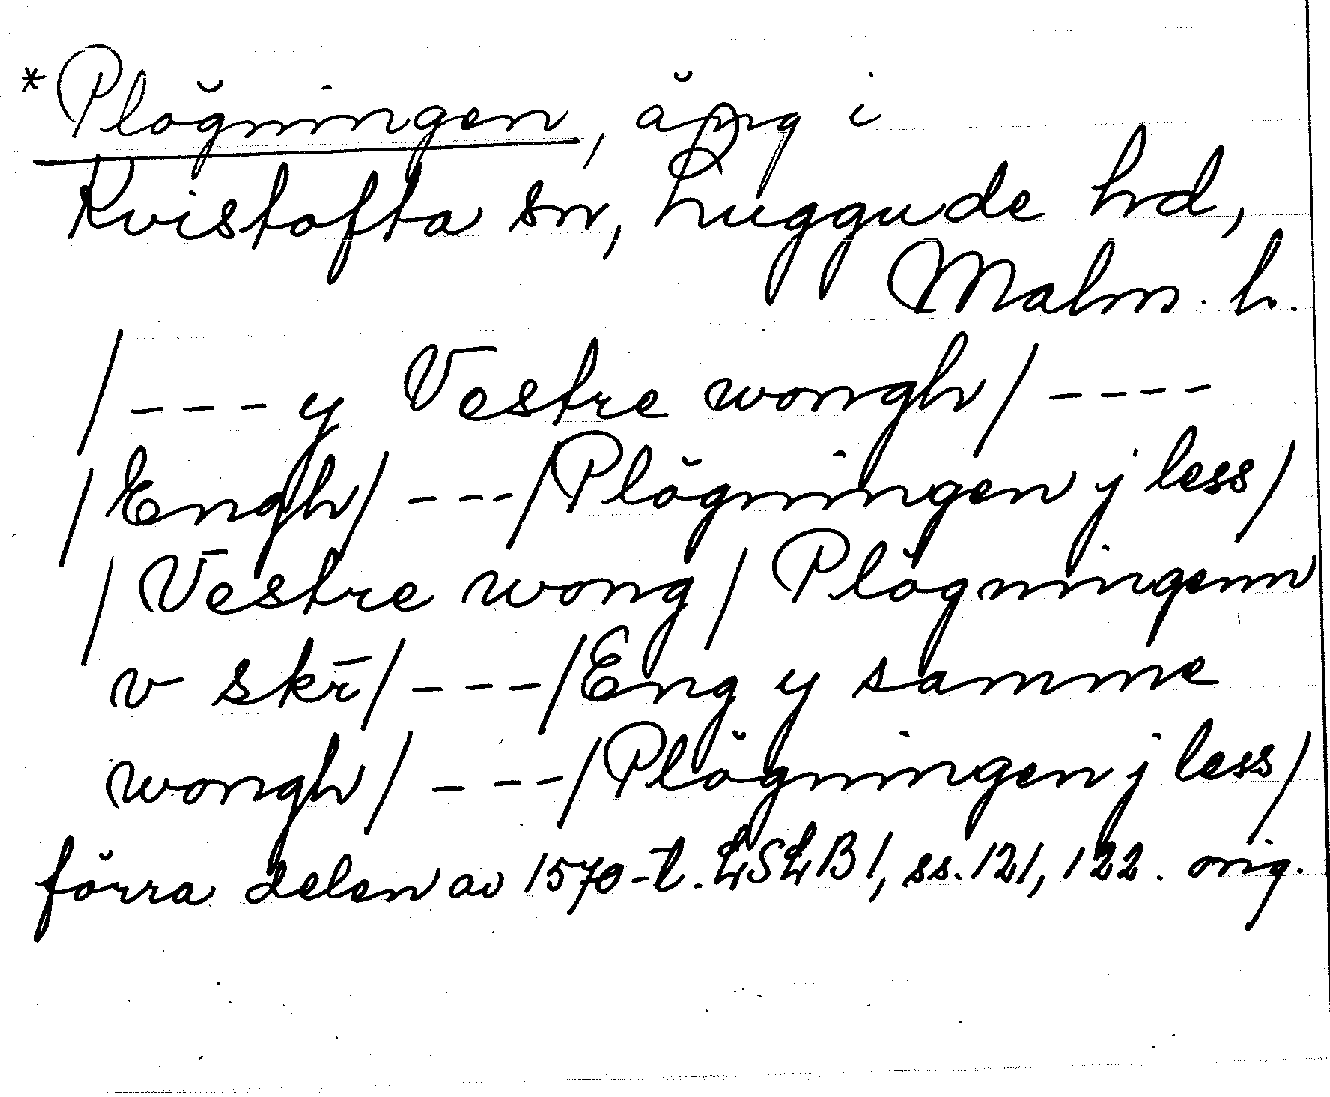 *Plögningen, äng i
Kvistofta sn, Luggude hd,
Malm. l.
/---y Vestre wongh/----
/Engh/---/Plögningen j less/
/Vestre wong/Plögningenn
v skr̄/---/Eng y samme
wongh/---/Plögningen j less/
förra delen av 1570-t. LSLB1, ss. 121, 122. orig.